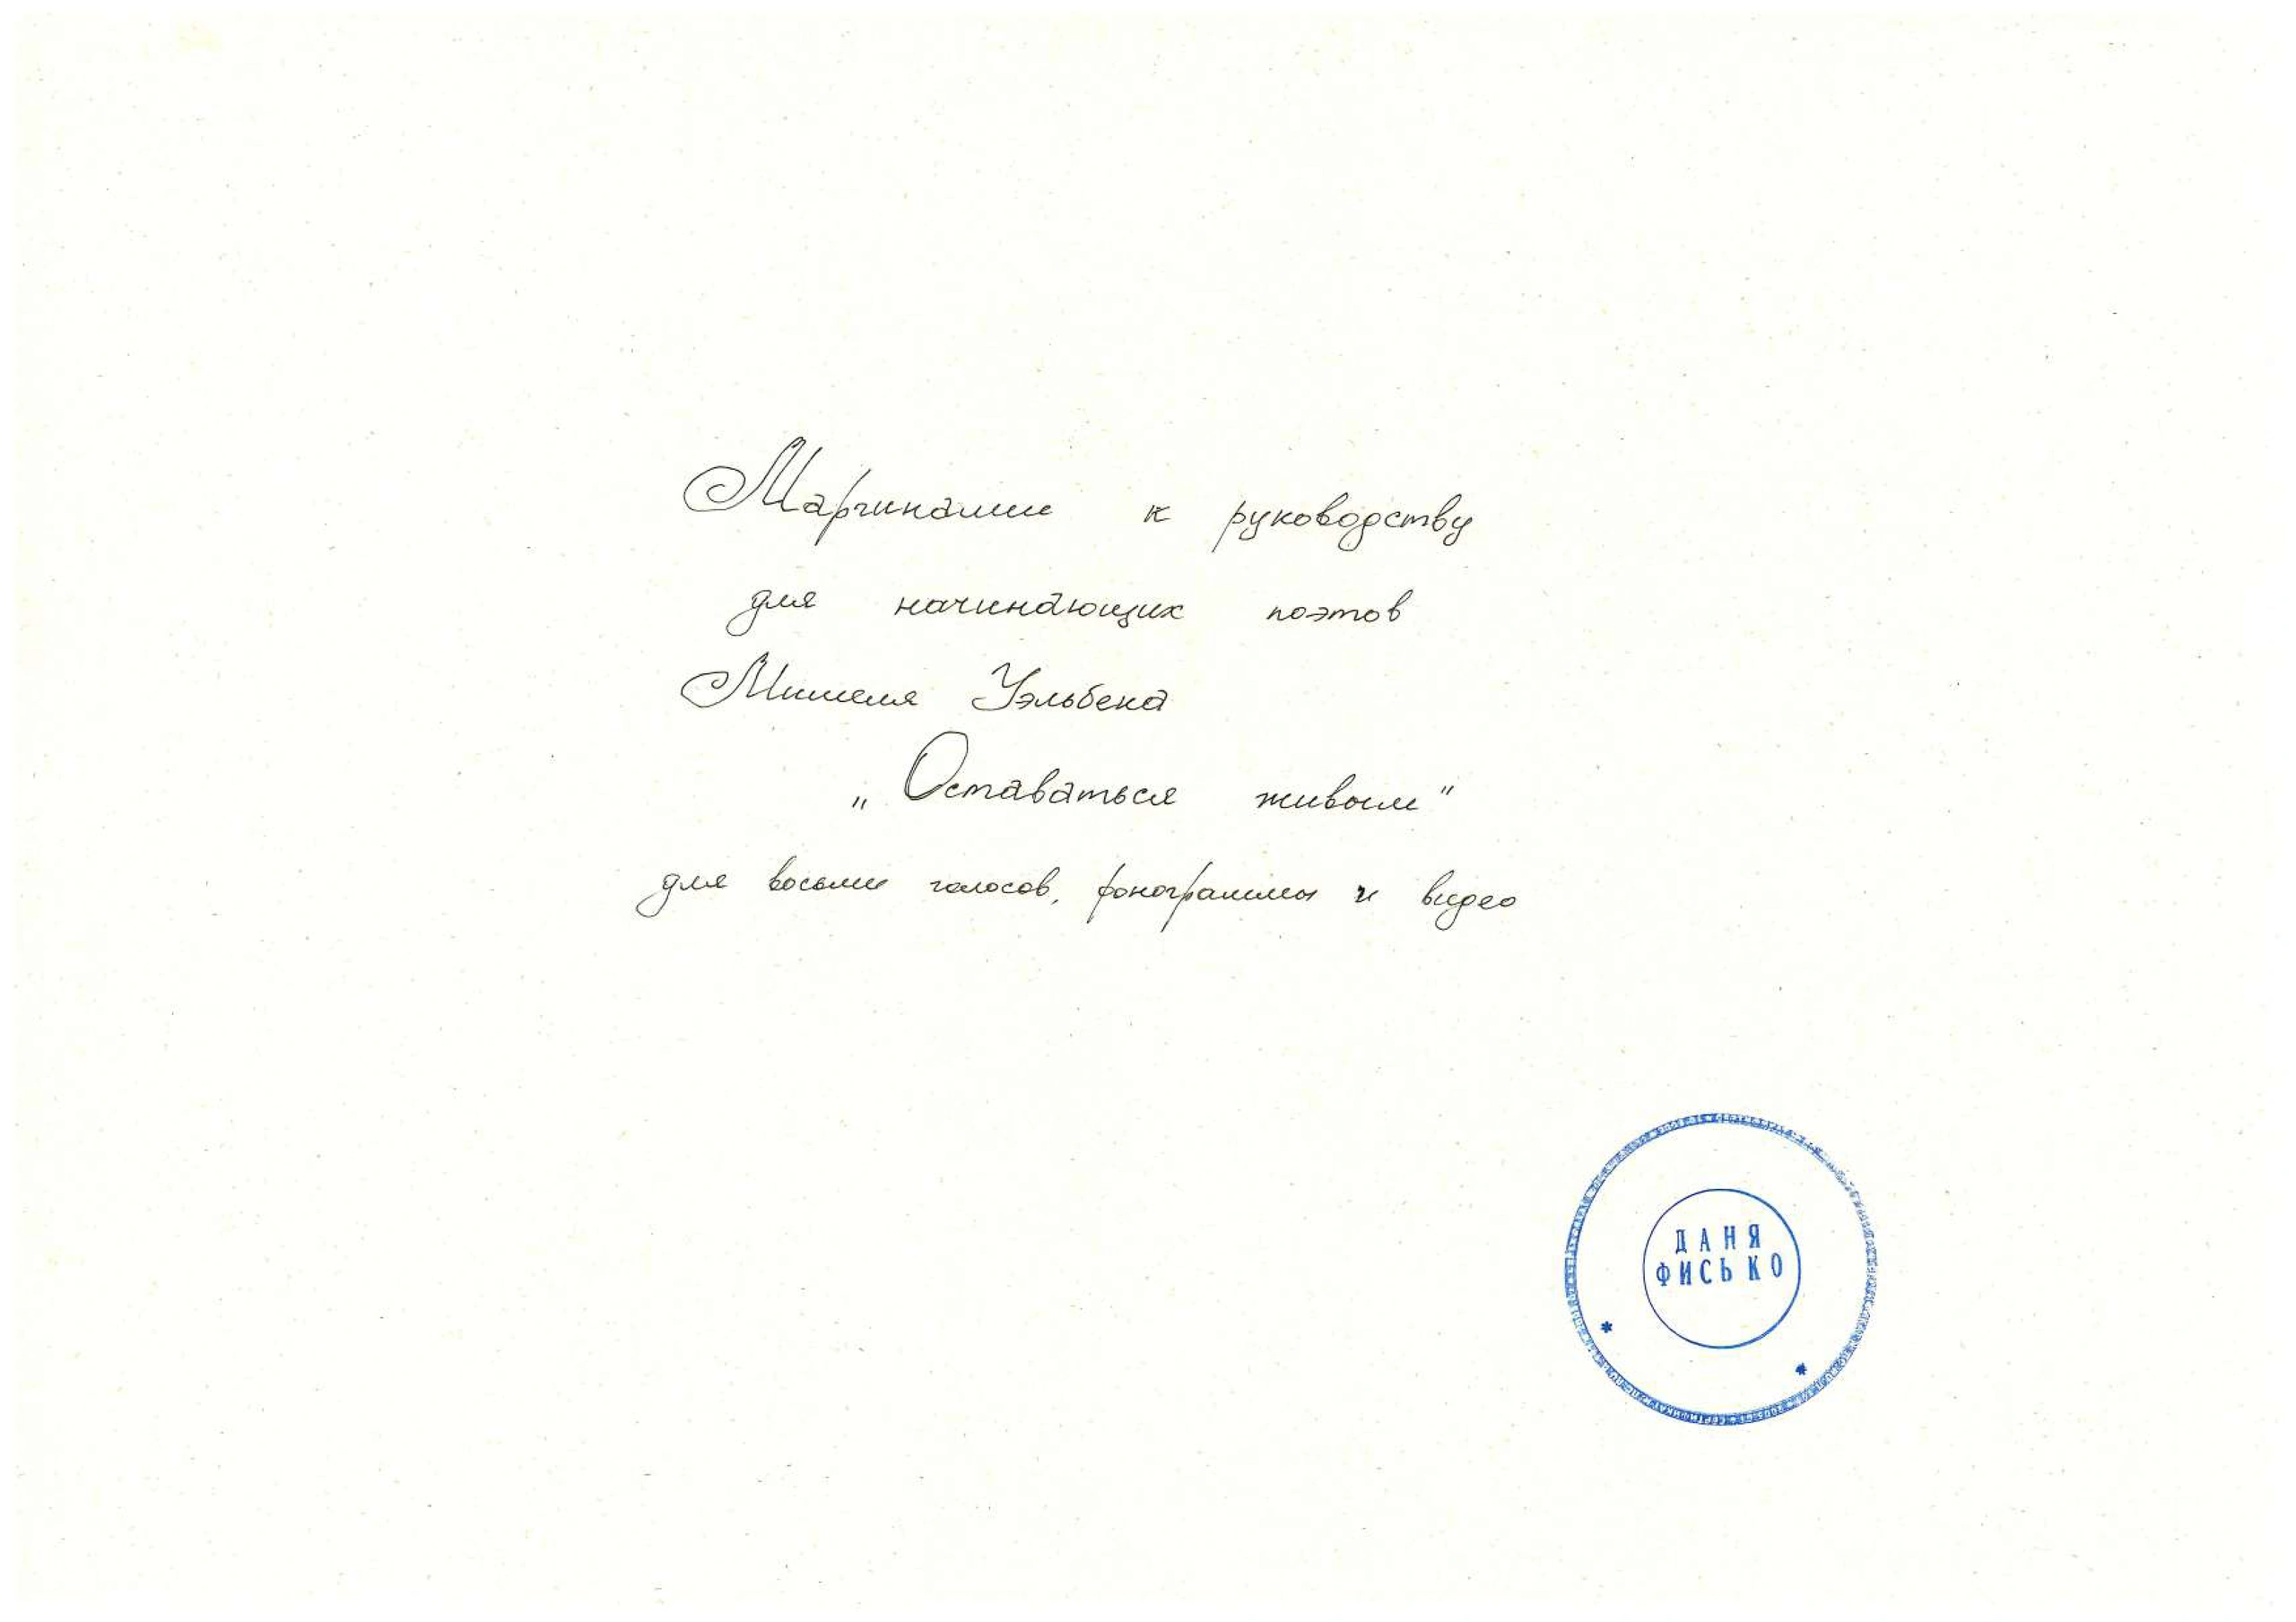 Маргиналии к руководству
для начинающих поэтов
Мишеля Уэльбека
„Оставаться живым"
для восьми голосов, фонограммы и видео
ДАНЯ
ФИСЬКО